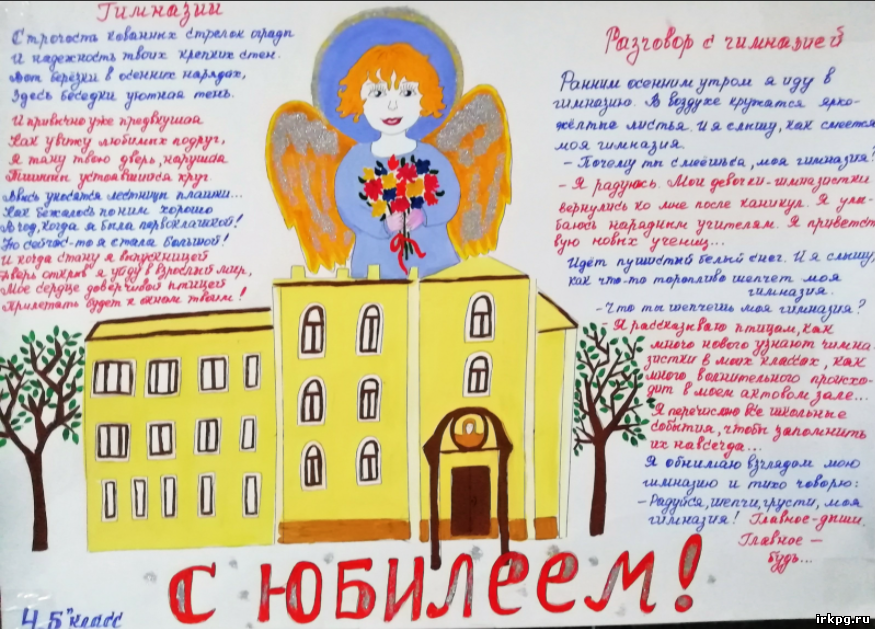 Гимназии
Строгость кованных стрелок оград
И надежность твоих крепких стен.
Вот берёзки в осенних нарядах,
Здесь беседки уютная тень.
И привычно уже предвкушая
Как увижу любимых подруг,
Я тяну твою дверь, нарушая
Тишины устоявшийся круг.
Ввысь уносятся лестниц плашки...
Как бежалось по ним хорошо
В год, когда я была первоклашкой!
Но сейчас-то я стала большой!
И когда стану я выпускницей
Дверь открыв я уйду в взрослый мир,
Мое сердце доверчивой птицей
Прилетать будет к окнам твоим!
Разговор с гимназией
Ранним осенним утром я иду в
гимназию. В воздухе кружатся ярко-
жёлтые листья. И я слышу, как смеется
моя гимназия.
- Почему ты смеёшься, моя гимназия?
- Я радуюсь. Мои девочки-гимназистки
вернулись ко мне после каникул. Я улы-
баюсь нарядным учителям. Я приветст
вую новых учениц...
Идёт пушистый белый снег. И я слышу,
как что-то торопливо шепчет моя
гимназия.
- Что ты шепчешь моя гимназия?
- Я рассказываю птицам, как
много нового узнают гимна-
зистки в моих классах, как
много волнительного происхо-
дит в моем актовом зале...
Я перечисляю все школьные
события, чтобы запомнить
их навсегда...
Я обнимаю взглядом мою
гимназию и тихо говорю:
- Радуйся, шепчи, грусти, моя
гимназия! Главное-дыши.
Главное -
будь...
С ЮБИЛЕЕМ!
4 Б" класс
irkpg.ru